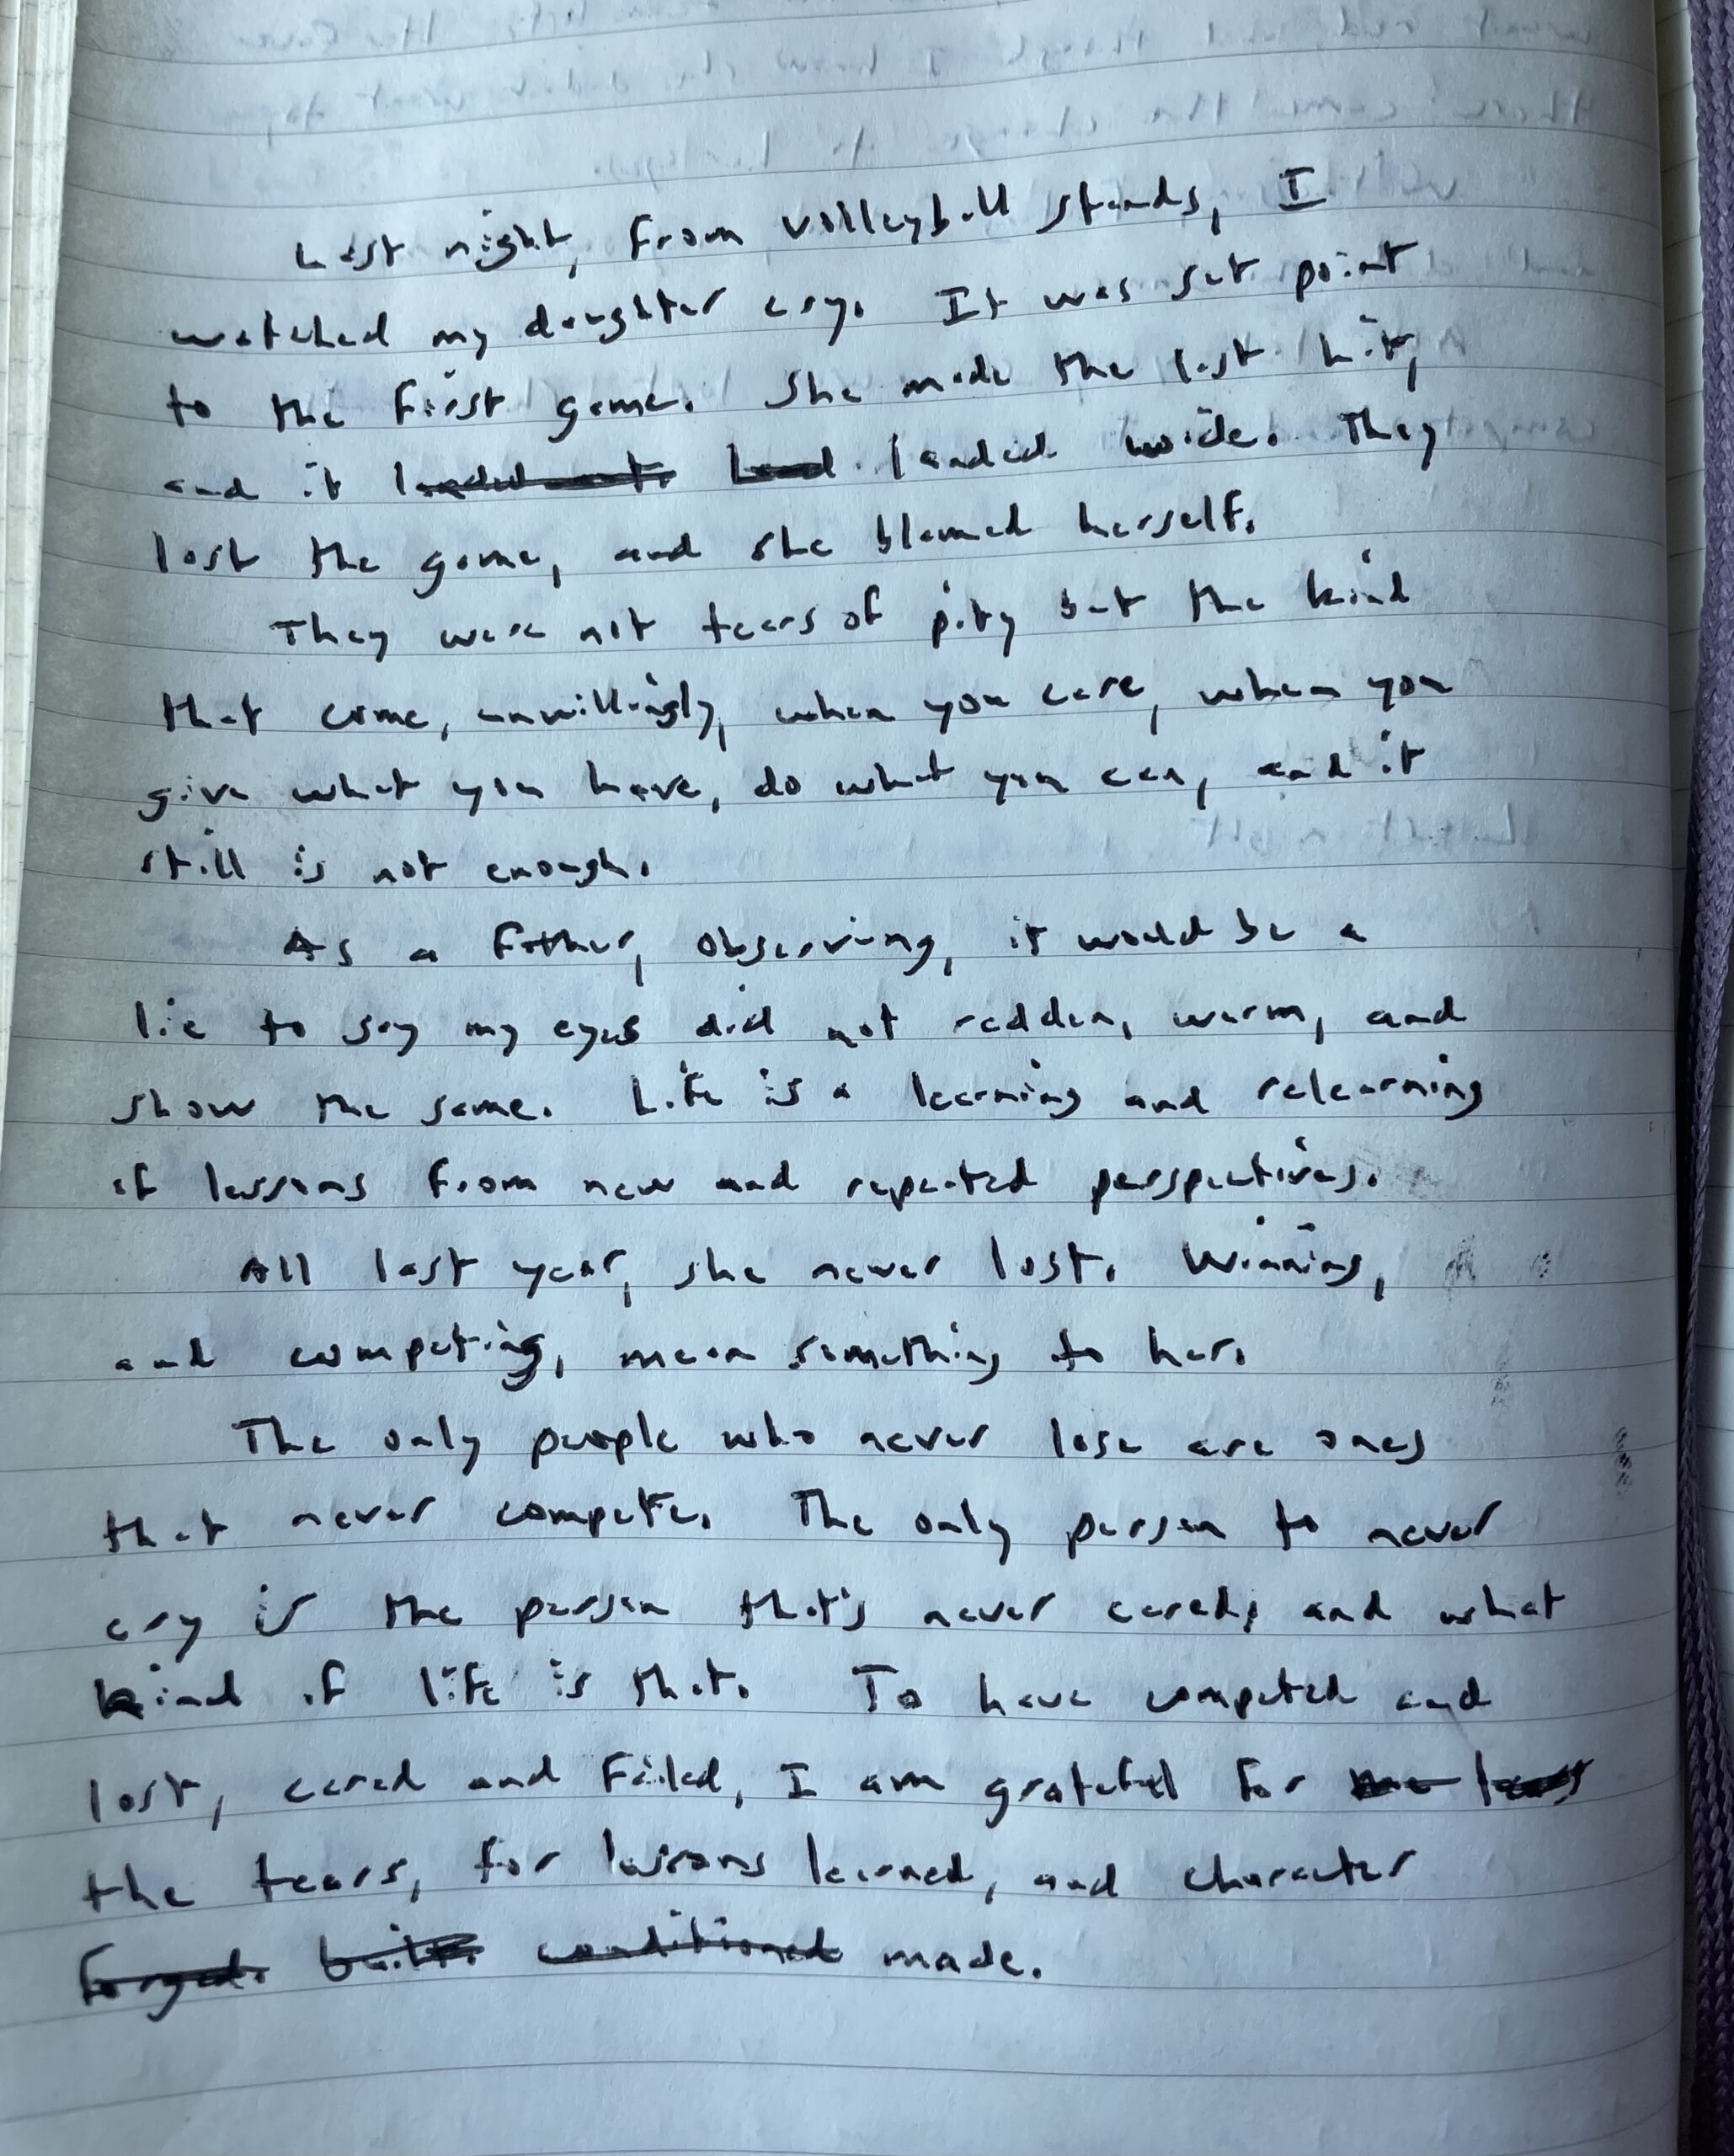 Last night, from volleyball stands, I
watched my daughter cry. It was set point
to the first game. She made the last hit,
and it landed wide. They
lost the game, and she blamed herself.
They were not tears of pity but the kind
that come, unwillingly, when you care, when you
give what you have, do what you can, and it
still is not enough.
As a father, observing, it would be a
lie to say my eyes did not redden, warm, and
show the same. Life is a learning and relearning
of lessons from new and repeated perspectives.
All last year, she never lost. Winning,
and competing, mean something to her.
The only people who never lose are ones
that never compete. The only person to never
cry is the person that's never cared; and what
kind of life is that. To have competed and
lost, cared and failed, I am grateful for
the tears, for lessons learned, and character
forged. built. conditioned made.